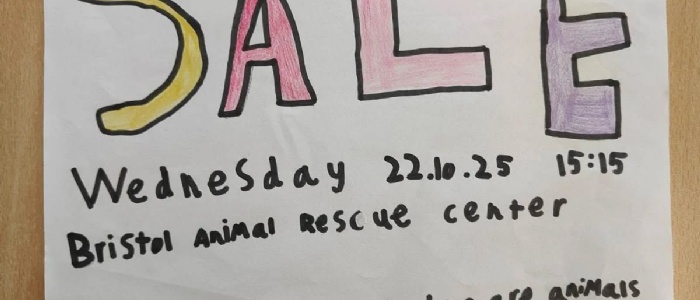 SALE
Wednesday 22.10.25 15:15
Bristol Animal Rescue center
are animals